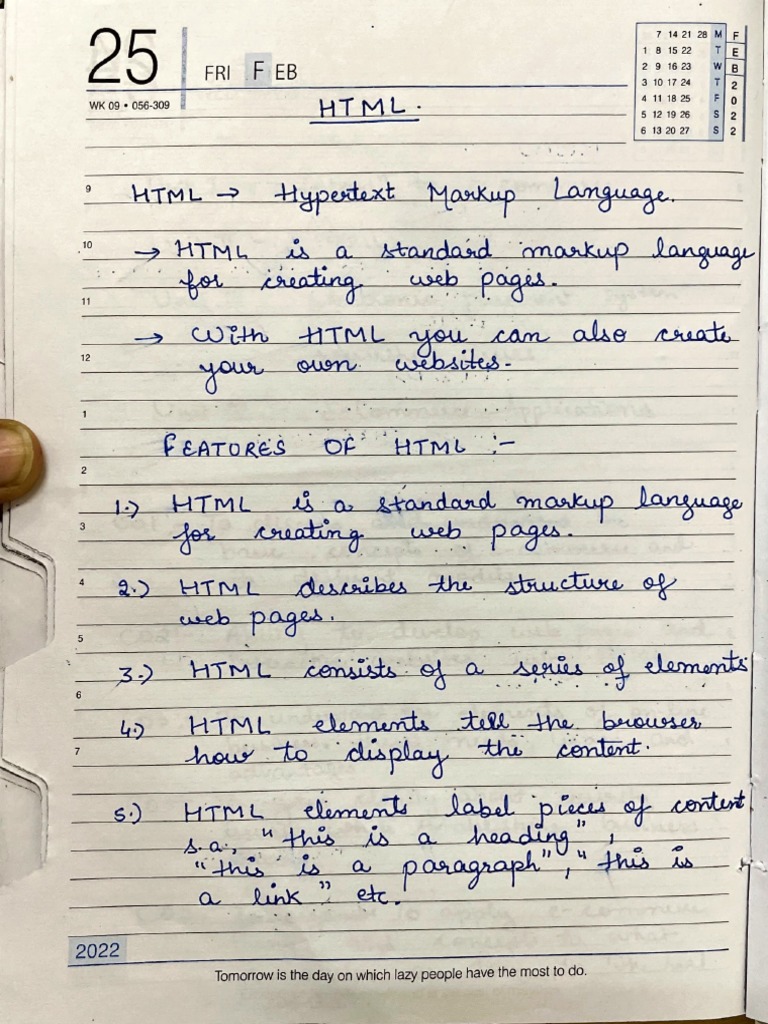 25 FRI FEB
WK 09 • 056-309
7 14 21 28 M F
1 8 15 22 T E
2 9 16 23 W B
3 10 17 24 T 2
4 11 18 25 F 0
5 12 19 26 S 2
6 13 20 27 S 2
HTML.
9 HTML → Hypertext Markup Language.
10 → HTML is a standard markup language
for creating web pages.
11
→ With HTML you can also create
12 your own websites.
1
FEATORES OF HTML :-
2
1.) HTML is a standard markup language
3 for creating web pages.
4 2.) HTML describes the structure of
web pages.
5
3.) HTML consists of a series of elements
6
4.) HTML elements tell the browser
7 how to display the content.
5.) HTML elements label pieces of content
s.a., "this is a heading",
"this is a paragraph", "this is
a link" etc.
2022
Tomorrow is the day on which lazy people have the most to do.